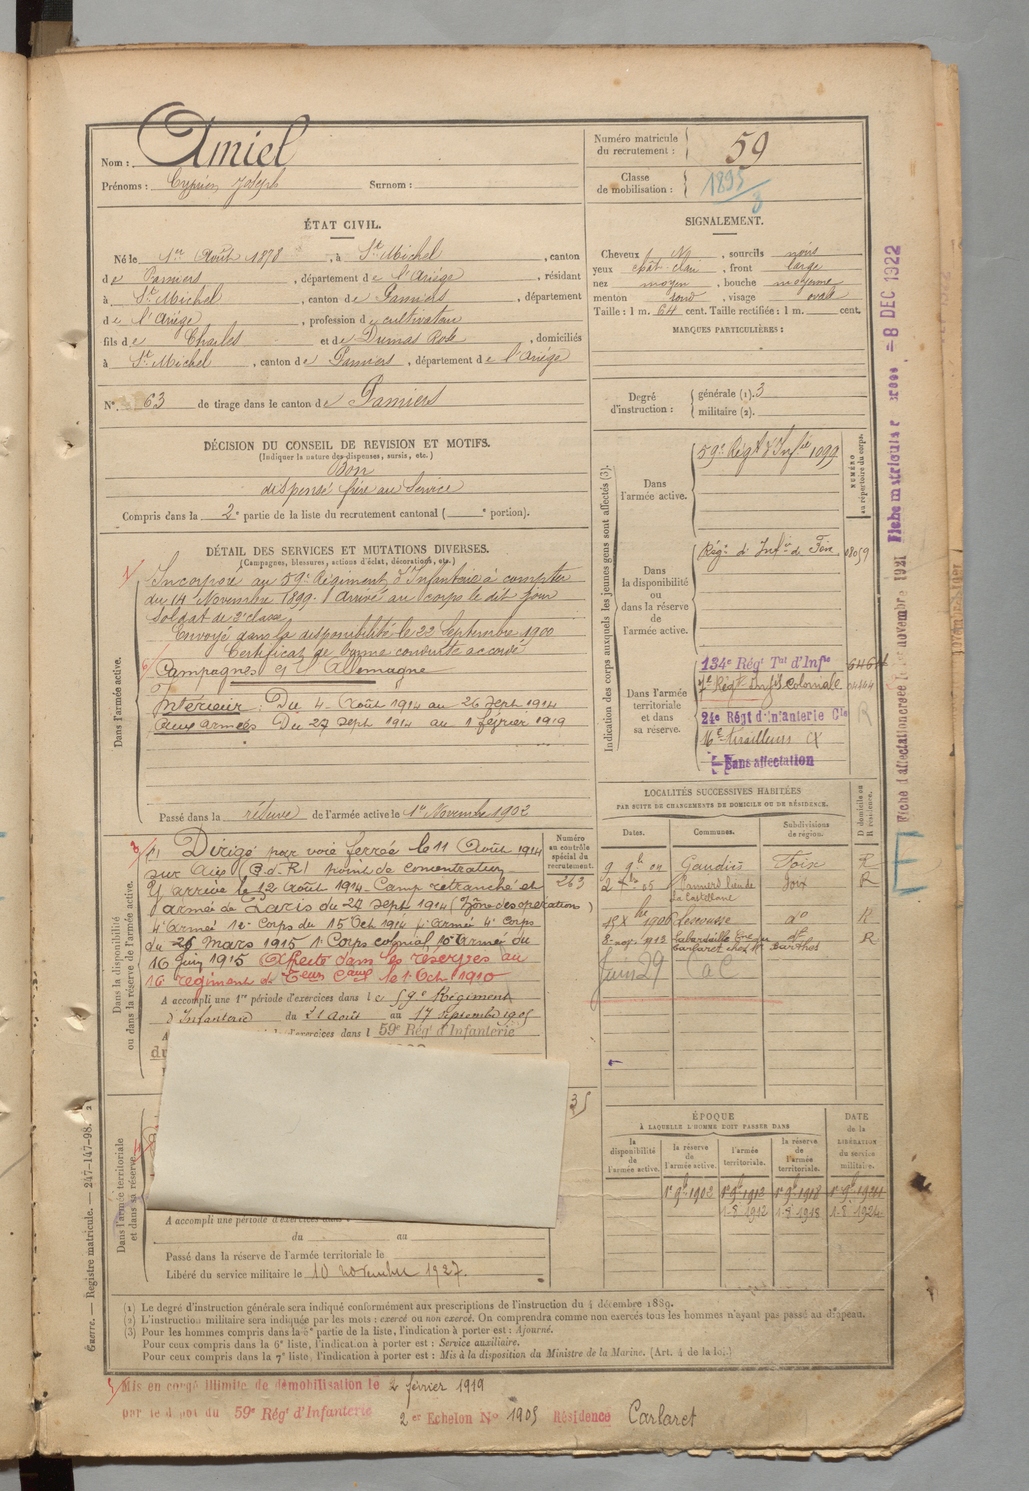 Nom : Amiel
Prénoms : Cyprien Joseph Surnom :
Numéro matricule du recrutement : 59
Classe de mobilisation : 1895
ÉTAT CIVIL.
Né le 1er Août 1878, à St Michel, canton
de Pamiers, département de l'Ariége, résidant
à St Michel, canton de Pamiers, département
de l'Ariége, profession de cultivateur
fils de Charles et de Dumas Rose, domiciliés
à St Michel, canton de Pamiers, département de l'Ariége
N° 63 de tirage dans le canton de Pamiers
SIGNALEMENT.
Cheveux, sourcils noirs
yeux chât. clair, front large
nez moyen, bouche moyenne
menton rond, visage ovale
Taille : 1 m. 64 cent. Taille rectifiée : 1 m. cent.
MARQUES PARTICULIÈRES :
Degré d'instruction : générale (1). 3
militaire (2).
DÉCISION DU CONSEIL DE REVISION ET MOTIFS.
(Indiquer la nature des dispenses, sursis, etc.)
Bon
dispensé frère au Service
Compris dans la 2e partie de la liste du recrutement cantonal ( e portion).
DÉTAIL DES SERVICES ET MUTATIONS DIVERSES.
(Campagnes, blessures, actions d'éclat, décorations, etc.)
Dans l'armée active.
Incorporé au 59e Régiment d'Infanterie à compter
du 14 Novembre 1899. Arrivé au corps le dit jour
Soldat de 2e classe
Envoyé dans la disponibilité le 22 Septembre 1900
Certificat de bonne conduite accordé
Campagnes Allemagne
Intérieur : Du 4 Août 1914 au 26 Sept 1914
aux armées Du 27 Sept 1914 au 1 février 1919
Passé dans la réserve de l'armée active le 1er Novembre 1902
Dans la disponibilité ou dans la réserve de l'armée active.
Numéro au contrôle spécial du recrutement.
263
Dirigé par voie ferrée le 11 Août 1914
sur Aix (B.d.R) point de concentration
Y arrivé le 12 Août 1914. Camp retranché et
armée de Paris du 27 Sept 1914 (Zone des opérations)
4e Armée 12e Corps du 15 Oct 1914 4e Armée 4e Corps
du 26 Mars 1915 1er Corps colonial 10e Armée du
16 Juin 1915 Affecté dans les réserves au
16e régiment de 1er Oct. 1910
A accompli une 1re période d'exercices dans le 59e Régiment
d'Infanterie du 21 août au 17 Septembre 1905
d'exercices dans l 59e Régt d'Infanterie
du
35
Dans l'armée territoriale et dans sa réserve.
A accompli une période d'exercices dans l
du au
Passé dans la réserve de l'armée territoriale le
Libéré du service militaire le 10 novembre 1927.
Indication des corps auxquels les jeunes gens sont affectés (3).
NUMÉRO au répertoire du corps.
Dans l'armée active.
59e Régt d'Infie 1099
Dans la disponibilité ou dans la réserve de l'armée active.
Régt d'Infie de Foix
Dans l'armée territoriale et dans sa réserve.
134e Régt Tal d'Infie
7e Régt Infie Coloniale
24e Régt d'Infanterie Cle
16e tirailleurs
Sans affectation
LOCALITÉS SUCCESSIVES HABITÉES
PAR SUITE DE CHANGEMENTS DE DOMICILE OU DE RÉSIDENCE.
Dates. Communes. Subdivisions de région. D domicile ou R résidence.
Gaudiès Foix R
Foix R
1906 Lescousse do R
8 nov. 1912 R
Juin 29
ÉPOQUE
À LAQUELLE L'HOMME DOIT PASSER DANS
la disponibilité de l'armée active.
la réserve de l'armée active.
l'armée territoriale.
la réserve de l'armée territoriale.
DATE de la LIBÉRATION du service militaire.
1er 9bre 1902 1er 9bre 1912 1er 9bre 1918 1er 9bre 1924
1-8 1912 1-8 1918 1-8 1924
(1) Le degré d'instruction générale sera indiqué conformément aux prescriptions de l'instruction du 4 décembre 1889.
(2) L'instruction militaire sera indiquée par les mots : exercé ou non exercé. On comprendra comme non exercés tous les hommes n'ayant pas passé au drapeau.
(3) Pour les hommes compris dans la 5e partie de la liste, l'indication à porter est : Ajourné.
Pour ceux compris dans la 6e liste, l'indication à porter est : Service auxiliaire.
Pour ceux compris dans la 7e liste, l'indication à porter est : Mis à la disposition du Ministre de la Marine. (Art. 4 de la loi.)
Mis en congé illimité de démobilisation le 2 février 1919
par le dépôt du 59e Régt d'Infanterie 2er Echelon N° 1905 Résidence Carlaret
Guerre. — Registre matricule. — 247-147-98.
Fiche d'affectation créée le novembre 1921 Fiche matricule 8 DEC 1922